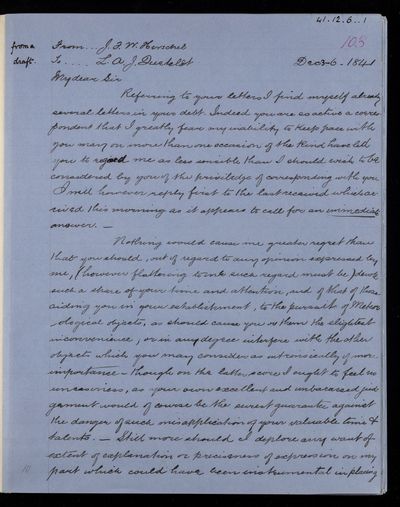 41.12.6..1
108
from a From... J. F. W. Herschel
draft. To ..... L. A. J. Quetelet Dec 6. 1841
My dear Sir
Referring to your letters I find myself already
several letters in your debt. Indeed you are so active a corres-
pondent that I greatly fear my inability to keep pace with
you may on more than one occasion of the kind have led
you to regard me as less sensible than I should wish to be
considered by you of the priviledge of corresponding with you
I will however reply first to the last received which ar
rived this morning as it appears to call for an immediate
answer. —
Nothing would cause me greater regret than
that you should, out of regard to any opinion expressed by
me, (however flattering to me such regard must be) devote
such a share of your time and attention, and of that of those
aiding you in your establishment, to the pursuit of Meteor
-ological objects, as should cause you or them the slightest
inconvenience, or in any degree interfere with the other
objects which you may consider as intrinsically of more
importance — though on this latter score I ought to feel no
uneasiness, as your own excellent and unbiassed jud
gement would of course be the surest guarantee against
the danger of such misapplication of your valuable time &
talents. — Still more should I deplore any want of
extent of explanation or preciseness of expression on my
part which could have been instrumental in placing